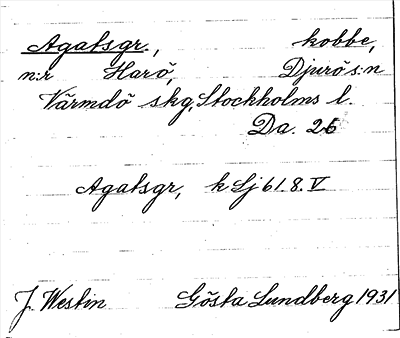 Agatsgr., kobbe,
n:r Harö, Djurö s:n
Värmdö skg, Stockholms l.
Da. 26
Agatsgr, k Lj 61.8.V
J. Westin Gösta Lundberg 1931